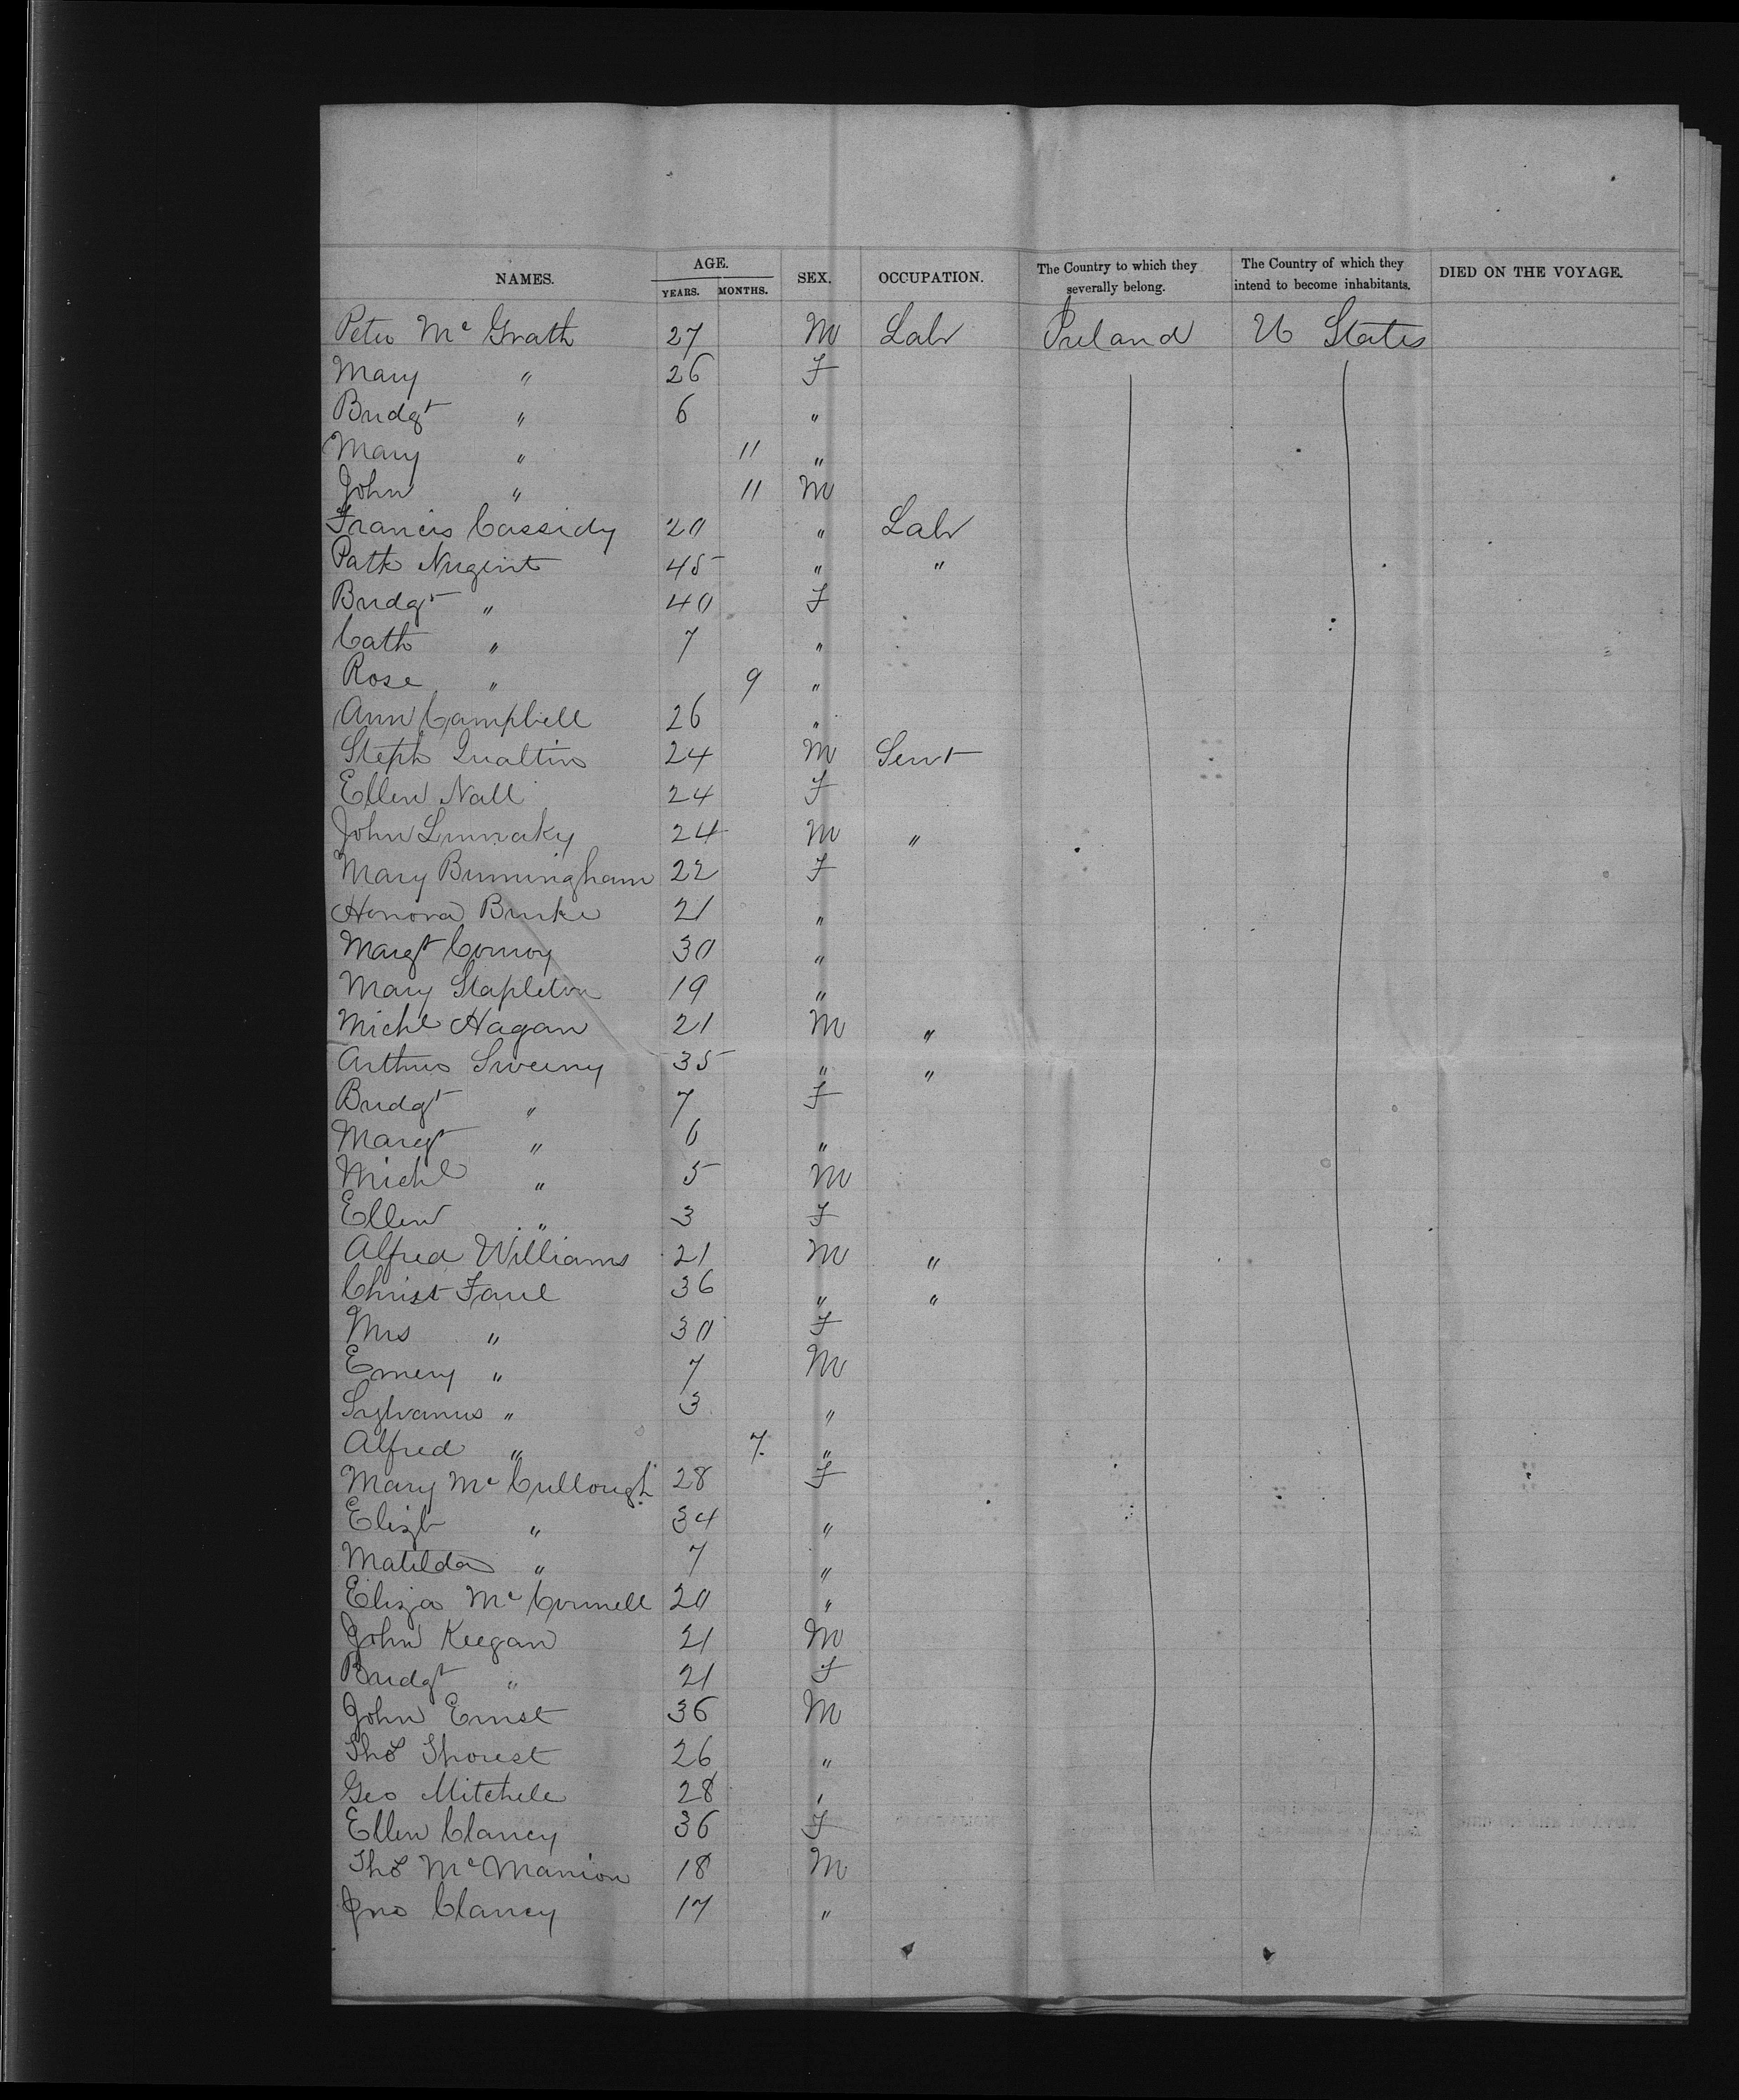 NAMES. AGE. YEARS. MONTHS. SEX. OCCUPATION. The Country to which they severally belong. The Country of which they intend to become inhabitants. DIED ON THE VOYAGE.
Peter Mc Grath 27 M Labr Ireland U States
Mary " 26 F
Bridgt " 6 "
Mary " 11 "
John " 11 M
Francis Cassidy 20 " Labr
Patk Nugent 45 " "
Bridgt " 40 F
Cath " 7 "
Rose " 9 "
Ann Campbell 26 "
Steph Qualtin 24 M Servt
Ellen Nall 24 F
John 24 M "
Mary Birmingham 22 F
Honora Burke 21 "
Margt Conroy 30 "
Mary Stapleton 19 "
Michl Hagan 21 M "
Arthur Sweeny 35 " "
Bridgt " 7 F
Margt " 6 "
Michl " 5 M
Ellen " 3 F
Alfred Williams 21 M "
Christ Faul 36 " "
Mrs " 30 F
Emery " 7 M
Sylvanus " 3 "
Alfred " 7 "
Mary Mc Cullough 28 F
Elizh " 34 "
Matilda " 7 "
Eliza Mc Connell 20 "
John Keegan 21 M
Bridgt " 21 F
John Ernst 36 M
Thos 26 "
Geo Mitchele 28 "
Ellen Clancy 36 F
Thos Mc Manion 18 M
Jno Clancy 17 "